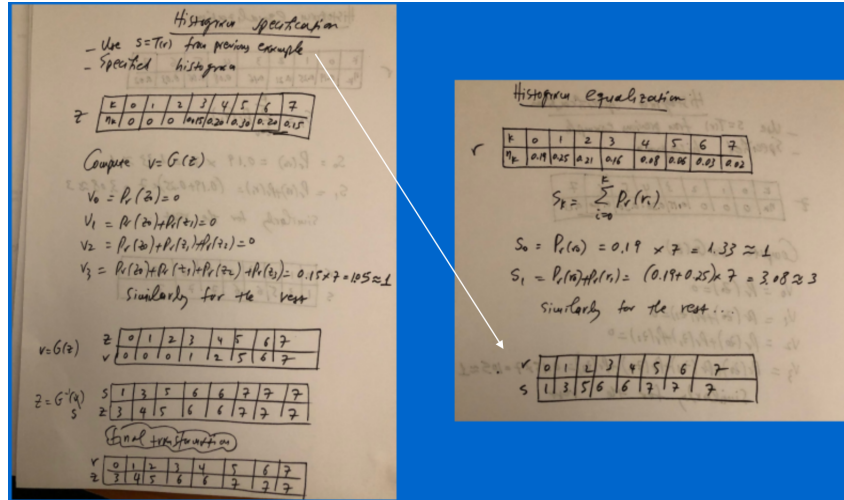 Histogram specification
- Use S=T(r) from previous example
- Specified histogram
z
K 0 1 2 3 4 5 6 7
nk 0 0 0 0.15 0.20 0.30 0.20 0.15
Compute v=G(z)
V0 = Pr(z0)=0
V1 = Pr(z0)+Pr(z1)=0
V2 = Pr(z0)+Pr(z1)+Pr(z2)=0
V3 = Pr(z0)+Pr(z1)+Pr(z2)+Pr(z3)= 0.15x7=1.05≈1
Similarly for the rest
v=G(z)
z 0 1 2 3 4 5 6 7
v 0 0 0 1 2 5 6 7
s 1 3 5 6 6 7 7 7
z 3 4 5 6 6 7 7 7
final transformation
r 0 1 2 3 4 5 6 7
z 3 4 5 6 6 7 7 7
Histogram equalization
r
K 0 1 2 3 4 5 6 7
nK 0.19 0.25 0.21 0.16 0.08 0.06 0.03 0.02
SK = Σ Pr(ri)
K
i=0
S0 = Pr(r0) = 0.19 x 7 = 1.33 ≈ 1
S1 = Pr(r0)+Pr(r1) = (0.19+0.25)x 7 = 3.08 ≈ 3
Similarly for the rest...
r 0 1 2 3 4 5 6 7
s 1 3 5 6 6 7 7 7